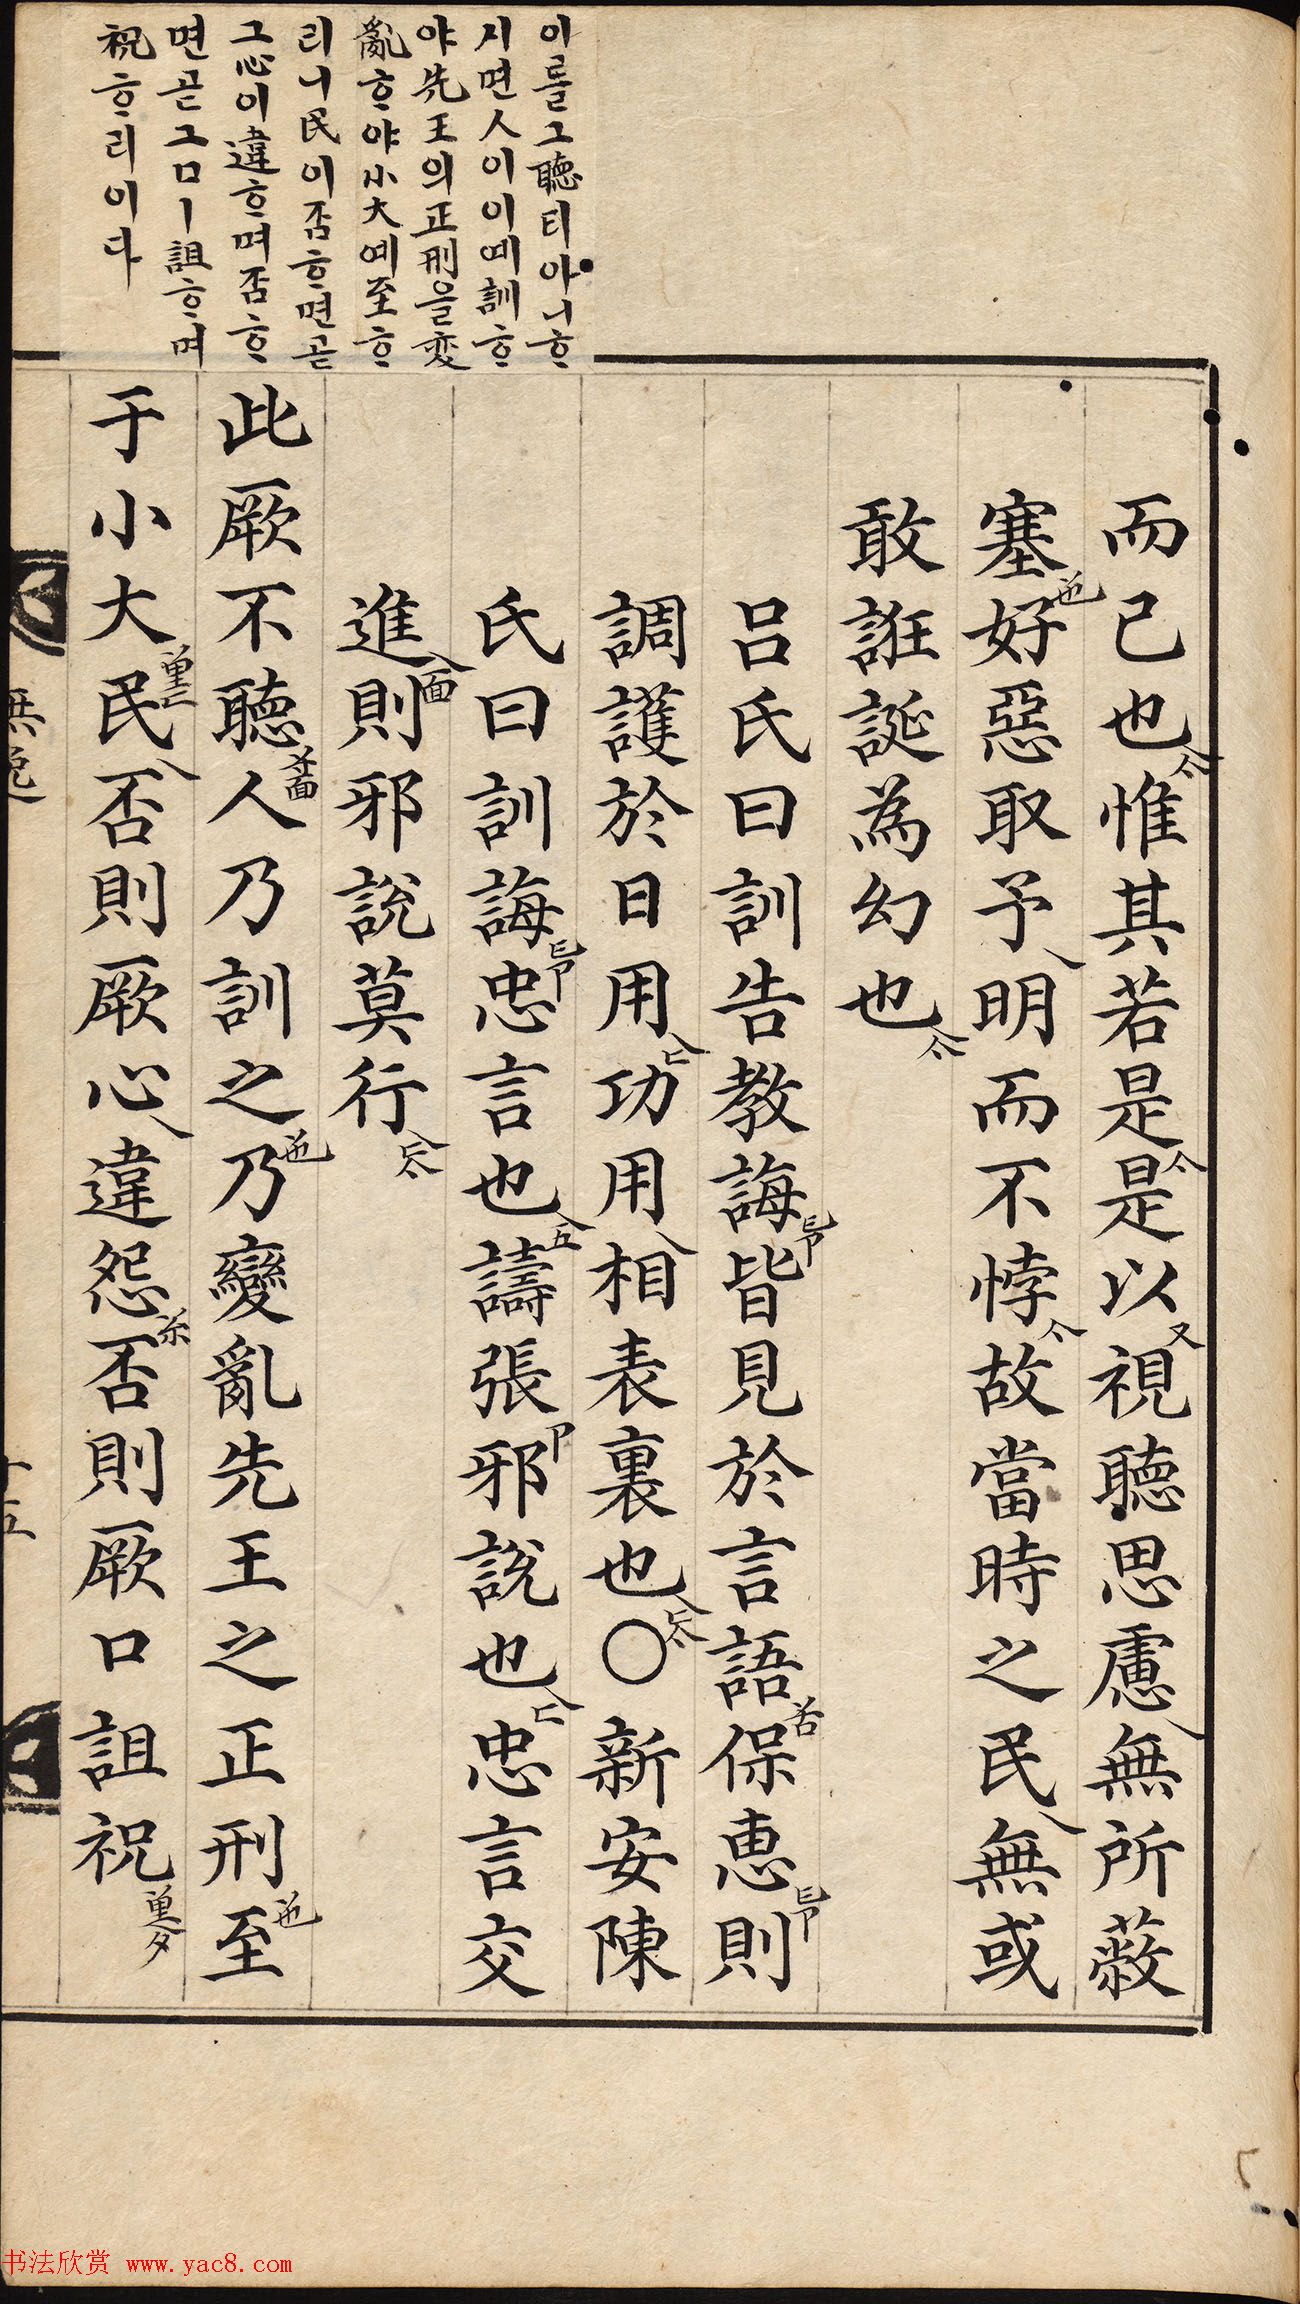 이를그聽티아니ᄒᆞ
시면人이이예訓ᄒᆞ
야先王의正刑을変
亂ᄒᆞ야小大예至ᄒᆞ
리니民이否ᄒᆞ면곧
그心이違ᄒᆞ며否ᄒᆞ
면곧그口ㅣ詛ᄒᆞ며
祝ᄒᆞ리이다
而已也惟其若是是以視聽思慮無所蔽
塞好惡取予明而不悖故當時之民無或
敢誑誕為幻也
呂氏曰訓告教誨皆見於言語保惠則
調護於日用功用相表裏也○新安陳
氏曰訓誨忠言也譸張邪說也忠言交
進則邪說莫行
此厥不聽人乃訓之乃變亂先王之正刑至
于小大民否則厥心違怨否則厥口詛祝
無逸
十五
书法欣赏 www.yac8.com